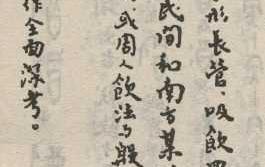 形長管、吸飲四
民間和南方某
或周人飲法与殷
作全面深考。